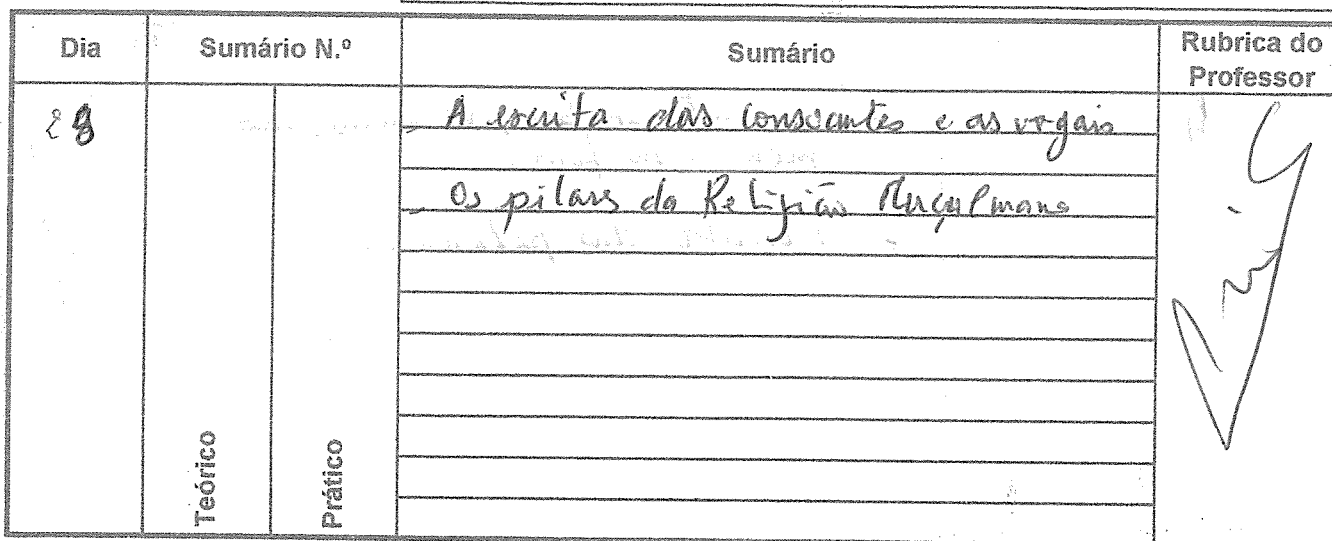 Dia
Sumário N.º
Sumário
Rubrica do
Professor
28
Teórico
Prático
- A escrita das consoantes e as vogais
- Os pilares da Religião Muçulmana